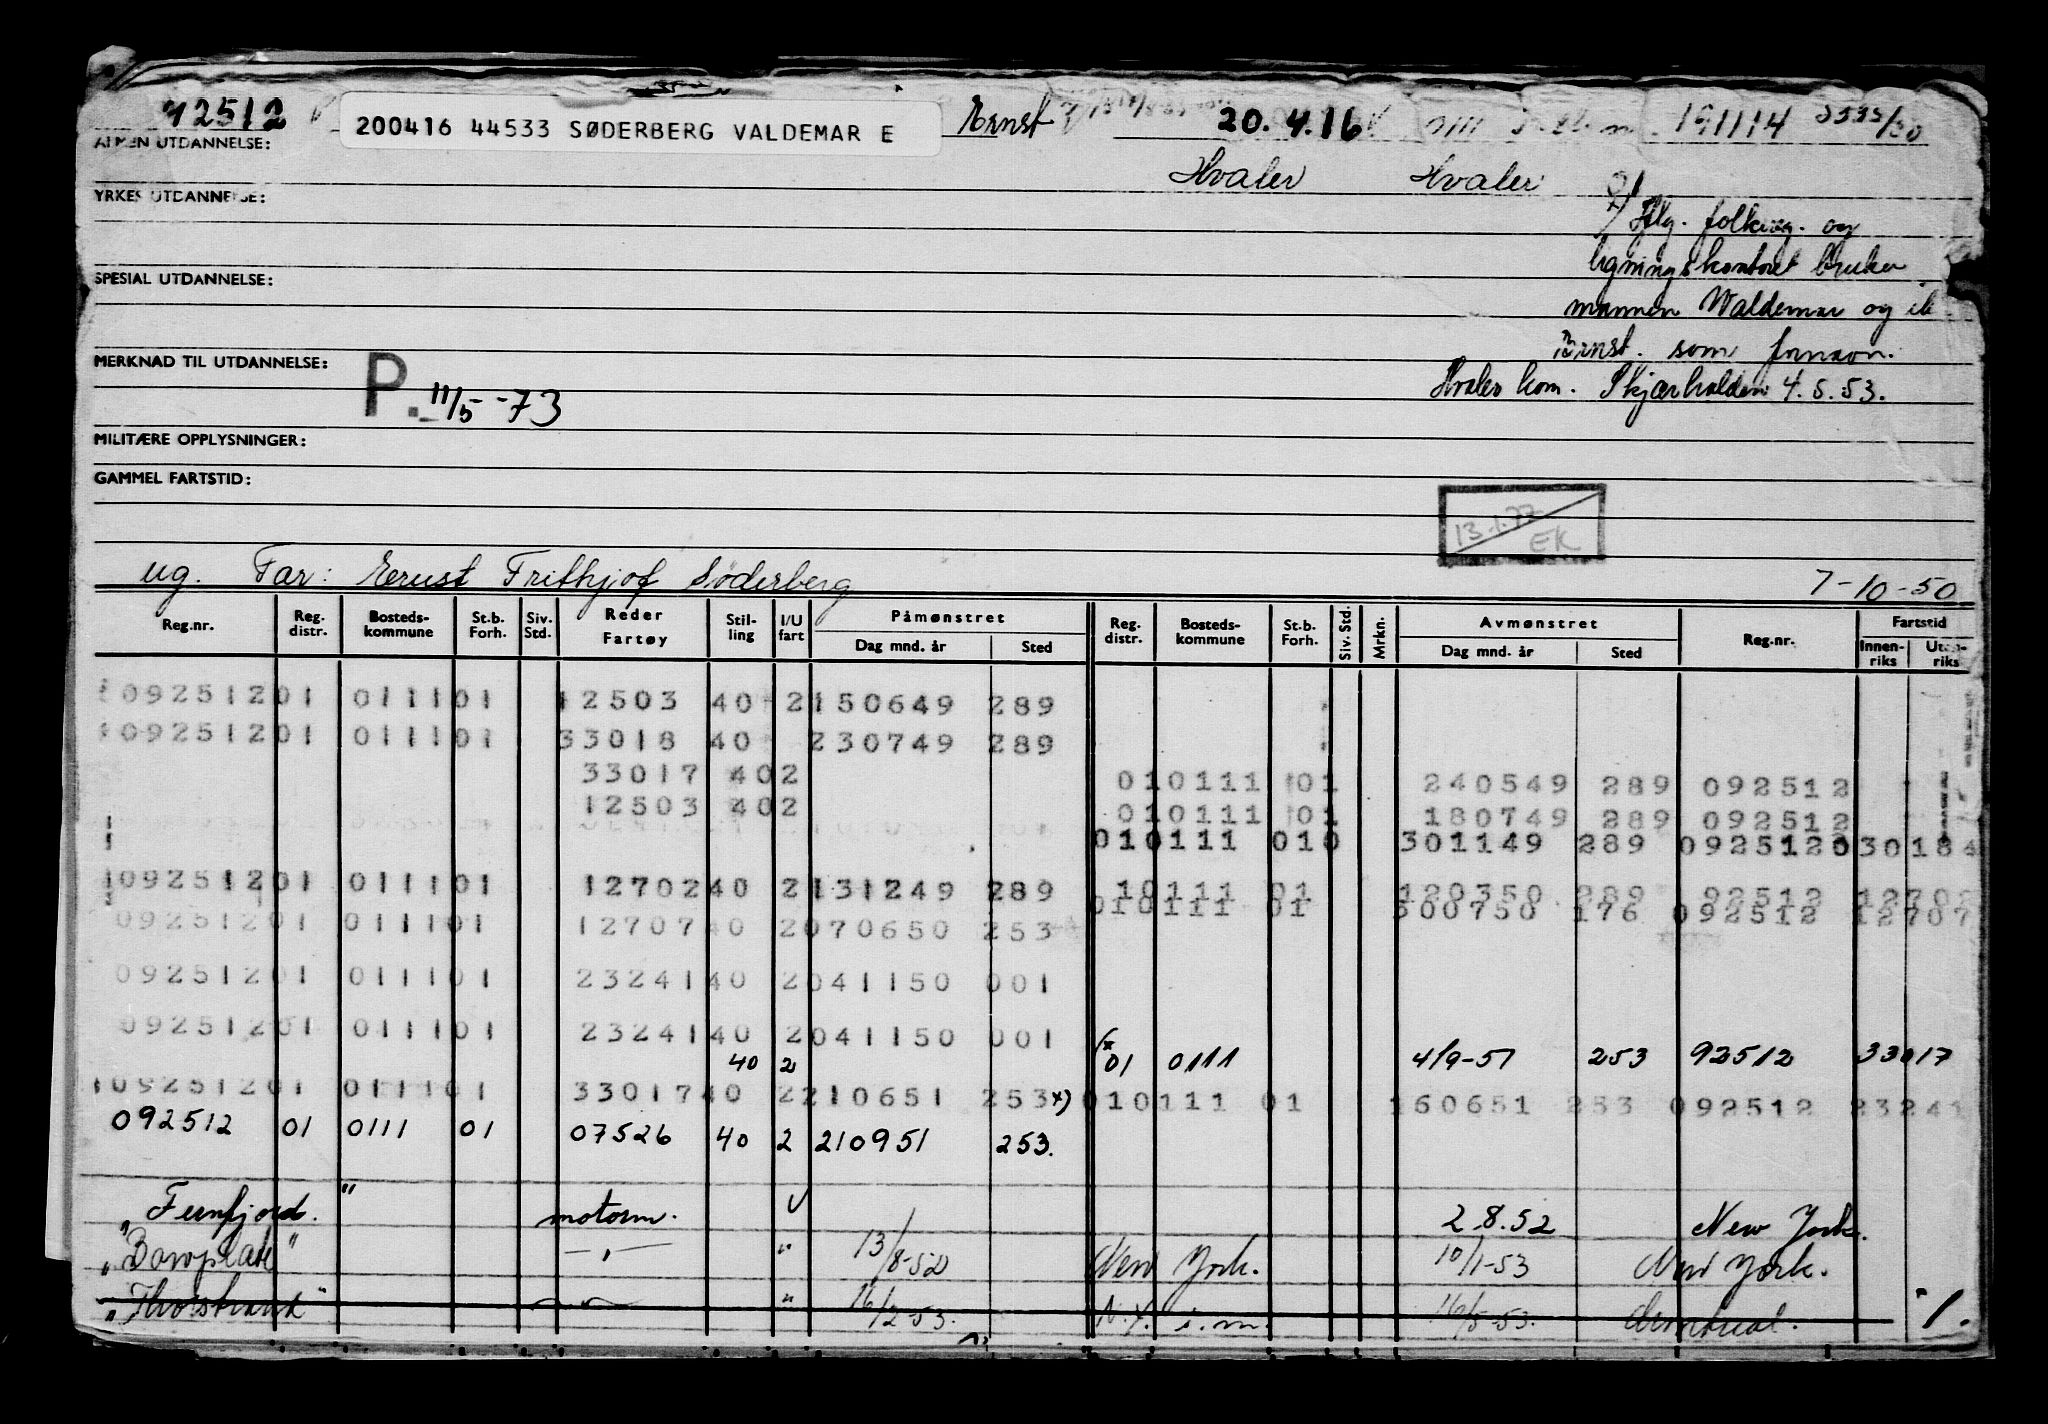 92512 200416 44533 SØDERBERG VALDEMAR E Ernst 20.4.16 191114
ALMEN UTDANNELSE:
Hvaler Hvaler
YRKES UTDANNELSE:
Iflg. folkereg. og
ligningskontoret bruker
SPESIAL UTDANNELSE:
mannen Waldemar og ikke
Ernst. som fornavn.
MERKNAD TIL UTDANNELSE: P. 11/5-73
Hvaler kom. Skjærhalden 4.5.53.
MILITÆRE OPPLYSNINGER:
GAMMEL FARTSTID:
13.1.77
EK
ug. Far: Ernst Frithjof Søderberg 7-10-50
Reg.nr. Reg. distr. Bosteds-kommune St.b. Forh. Siv. Std. Reder Fartøy Stil-ling I/U fart Påmønstret Dag mnd. år Sted Reg. distr. Bosteds-kommune St.b. Forh. Siv. Std. Mrkn. Avmønstret Dag mnd. år Sted Reg.nr. Fartstid Innen-riks Uten-riks
092512 01 0111 01 12503 40 2 150649 289
092512 01 0111 01 33018 40 230749 289
33017 40 2 01 0111 01 240549 289 092512
12503 40 2 01 0111 01 180749 289 092512
01 0111 01 0 301149 289 092512 0 30184
092512 01 0111 01 12702 40 2 131249 289 1 0111 01 120350 289 92512 12702
01 0111 01 300750 176 092512 12707
092512 01 0111 01 12707 40 2 070650 253
092512 01 0111 01 23241 40 2 041150 001
092512 01 0111 01 23241 40 2 041150 001
40 2 01 0111 4/9-51 253 92512 33017
092512 01 0111 01 33017 40 2 210651 253 x) 01 0111 01 160651 253 092512 23241
092512 01 0111 01 07526 40 2 210951 253.
"Fernfjord." motorm. U 2.8.52 New York.
"Bowplate" -"- " 13/8-52 New York. 10/1-53 New York.
"Thorstrand" -"- " 16/2-53. N.Y. i.m. 16/5-53. 1.